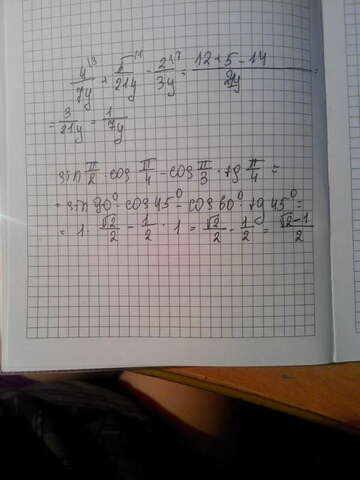 4^{\3}/7y + 5^{\1}/21y - 2^{\7}/3y = 12+5-14/21y =
= 3/21y = 1/7y
sin π/2 · cos π/4 - cos π/3 · tg π/4 =
= sin 90° · cos 45° - cos 60° · tg 45° =
= 1 · √2/2 - 1/2 · 1 = √2/2 - 1/2 = √2-1/2